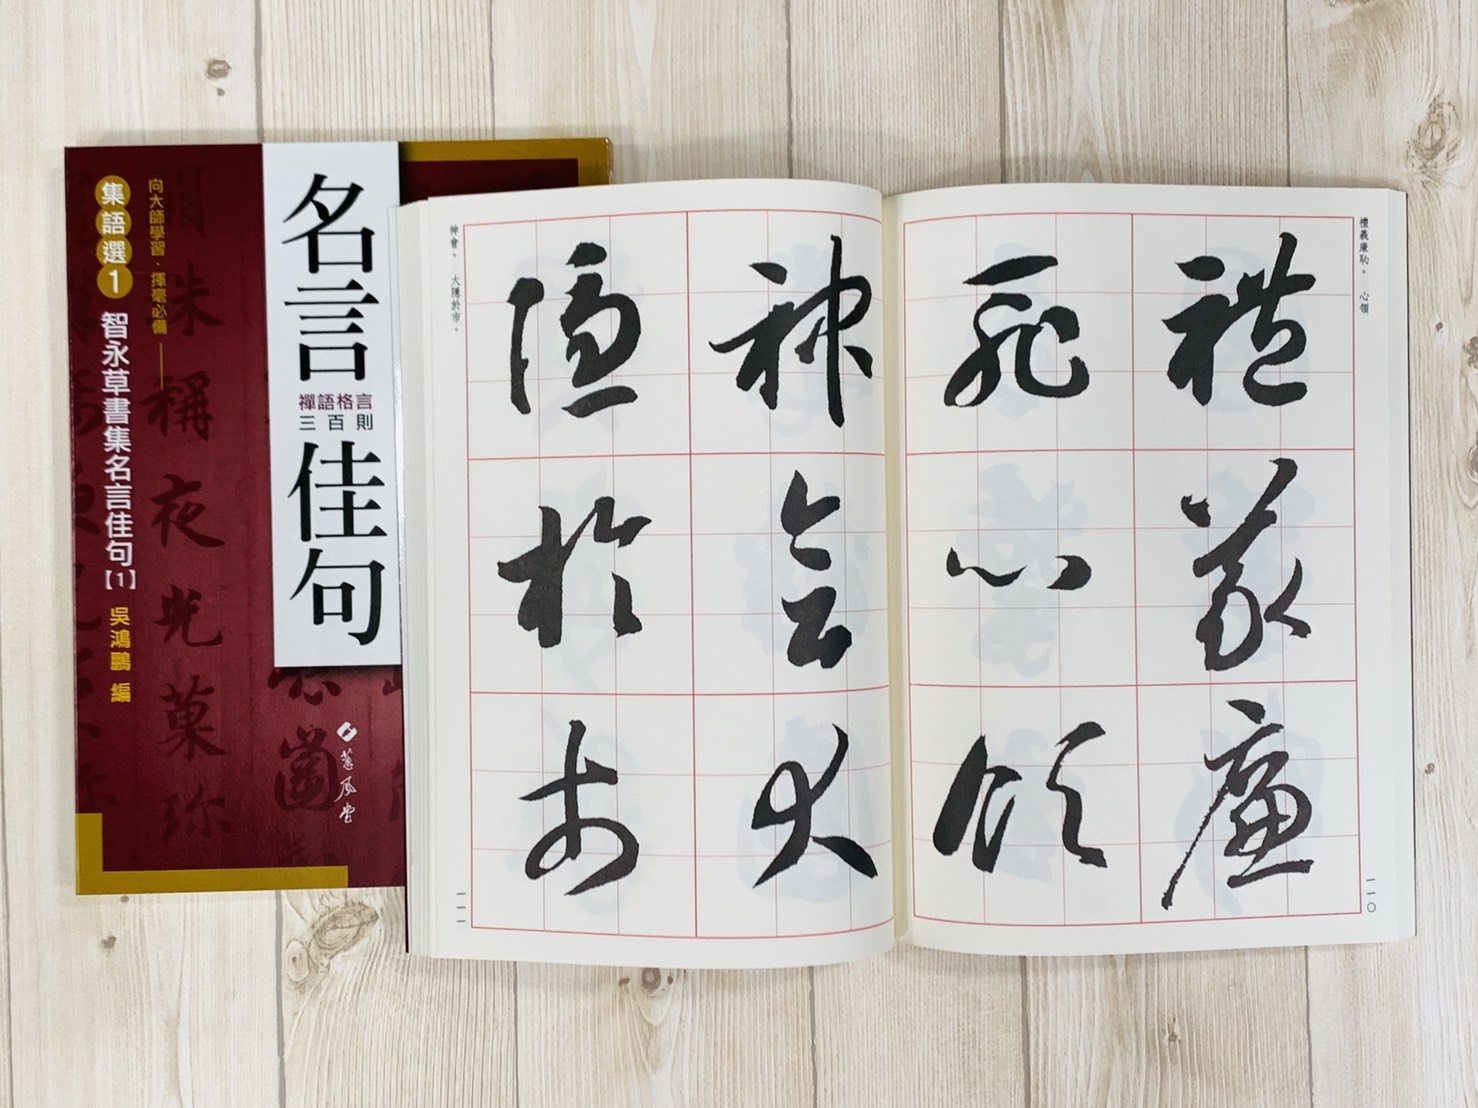 名言佳句
禪語格言
三百則
向大師學習．揮毫必備
集語選1
智永草書集名言佳句【1】
吳鴻鵬 編
蕙風堂
禮義廉恥。　心領
禮義廉
恥心領
一一〇
神會。　大隱於市。
神會大
隱於市
一一一